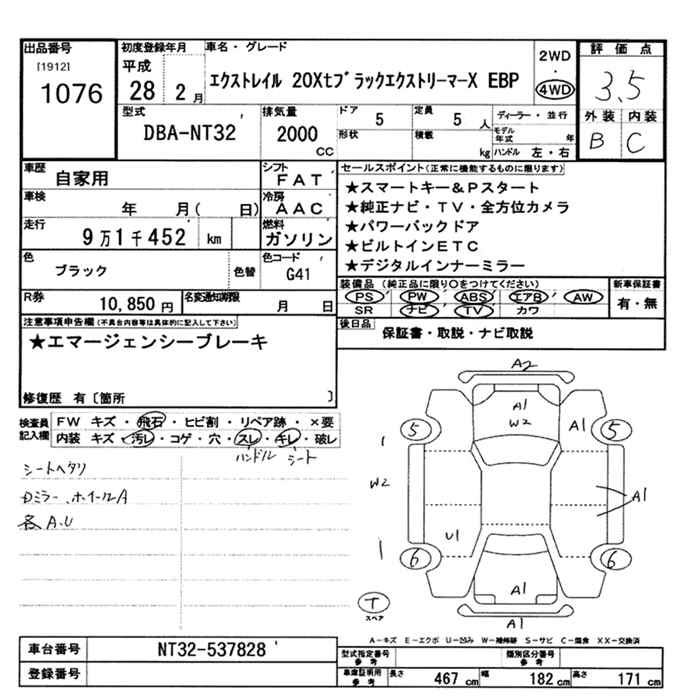 出品番号 初度登録年月 車名・グレード 2WD 評価点
[1912] 平成 ・ 3.5
1076 28 2月 エクストレイル 20Xtブラックエクストリーマ-X EBP 4WD
型式 排気量 ドア 5 定員 5人 ディーラー・並行 外装 内装
DBA-NT32 2000cc 形状 積載 kg モデル年式 年 B C
ハンドル 左・右
車歴 自家用 シフト FAT セールスポイント(正常に機能するものに限ります)
車検 年 月( 日) 冷房 AAC ★スマートキー&Pスタート
★純正ナビ・TV・全方位カメラ
走行 9万1千452 km 燃料 ガソリン ★パワーバックドア
★ビルトインETC
色 ブラック 色替 色コード G41 ★デジタルインナーミラー
R券 10,850円 名変通知期限 月 日 装備品 (純正品に限り○をつけてください) 新車保証書
PS PW ABS エアB AW 有・無
SR ナビ TV カワ
注意事項申告欄(不具合内容等は具体的に記入して下さい) 後日品 保証書・取説・ナビ取説
★エマージェンシーブレーキ
修復歴 有〔箇所 〕
検査員記入欄 FW キズ・飛石・ヒビ割・リペア跡・×要
内装 キズ・汚レ・コゲ・穴・スレ・キレ・破レ
ハンドル シート
シートヘタリ
Dミラー、ホイールA
各A.U
A2
A1
W2
A1
5 5
W2
A1
U1
6 6
A1
T
スペア
A1
A-キズ E-エクボ U-凹み W-補修跡 S-サビ C-腐食 XX-交換済
車台番号 NT32-537828 型式指定番号 参考 類別区分番号 参考
登録番号 車庫証明用 参考 長さ 467 cm 幅 182 cm 高さ 171 cm